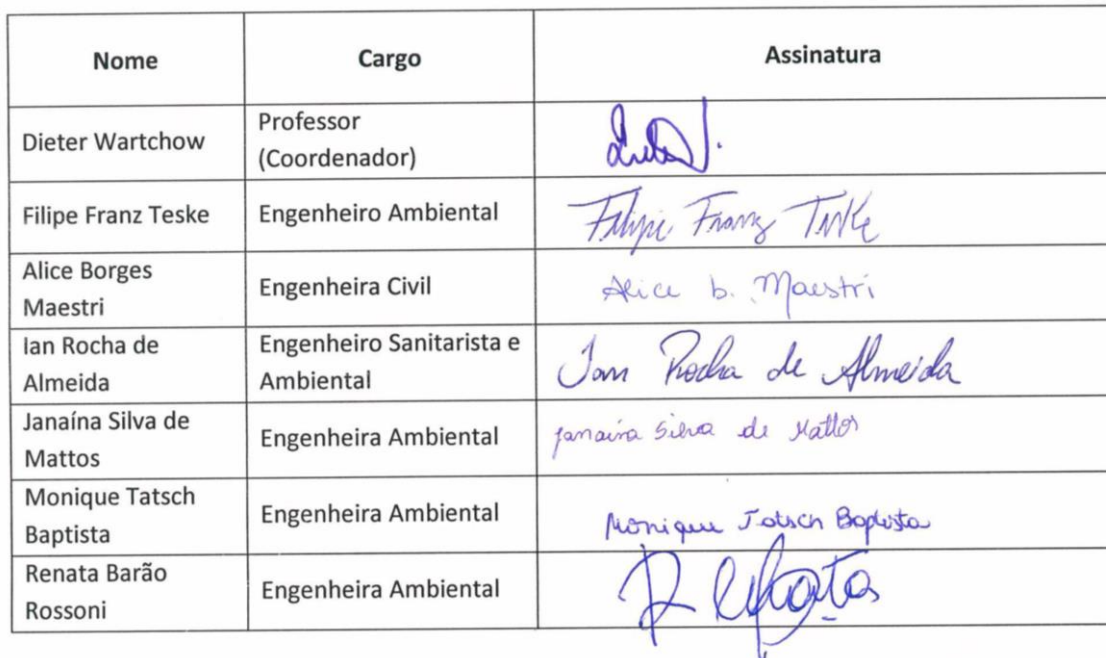 Nome Cargo Assinatura
Dieter Wartchow
Professor
(Coordenador)
Filipe Franz Teske
Engenheiro Ambiental
Filipe Franz Teske
Alice Borges
Maestri
Engenheira Civil
Alice b. Maestri
Ian Rocha de
Almeida
Engenheiro Sanitarista e
Ambiental
Ian Rocha de Almeida
Janaína Silva de
Mattos
Engenheira Ambiental
Janaina Silva de Mattos
Monique Tatsch
Baptista
Engenheira Ambiental
Monique Tatsch Baptista
Renata Barão
Rossoni
Engenheira Ambiental